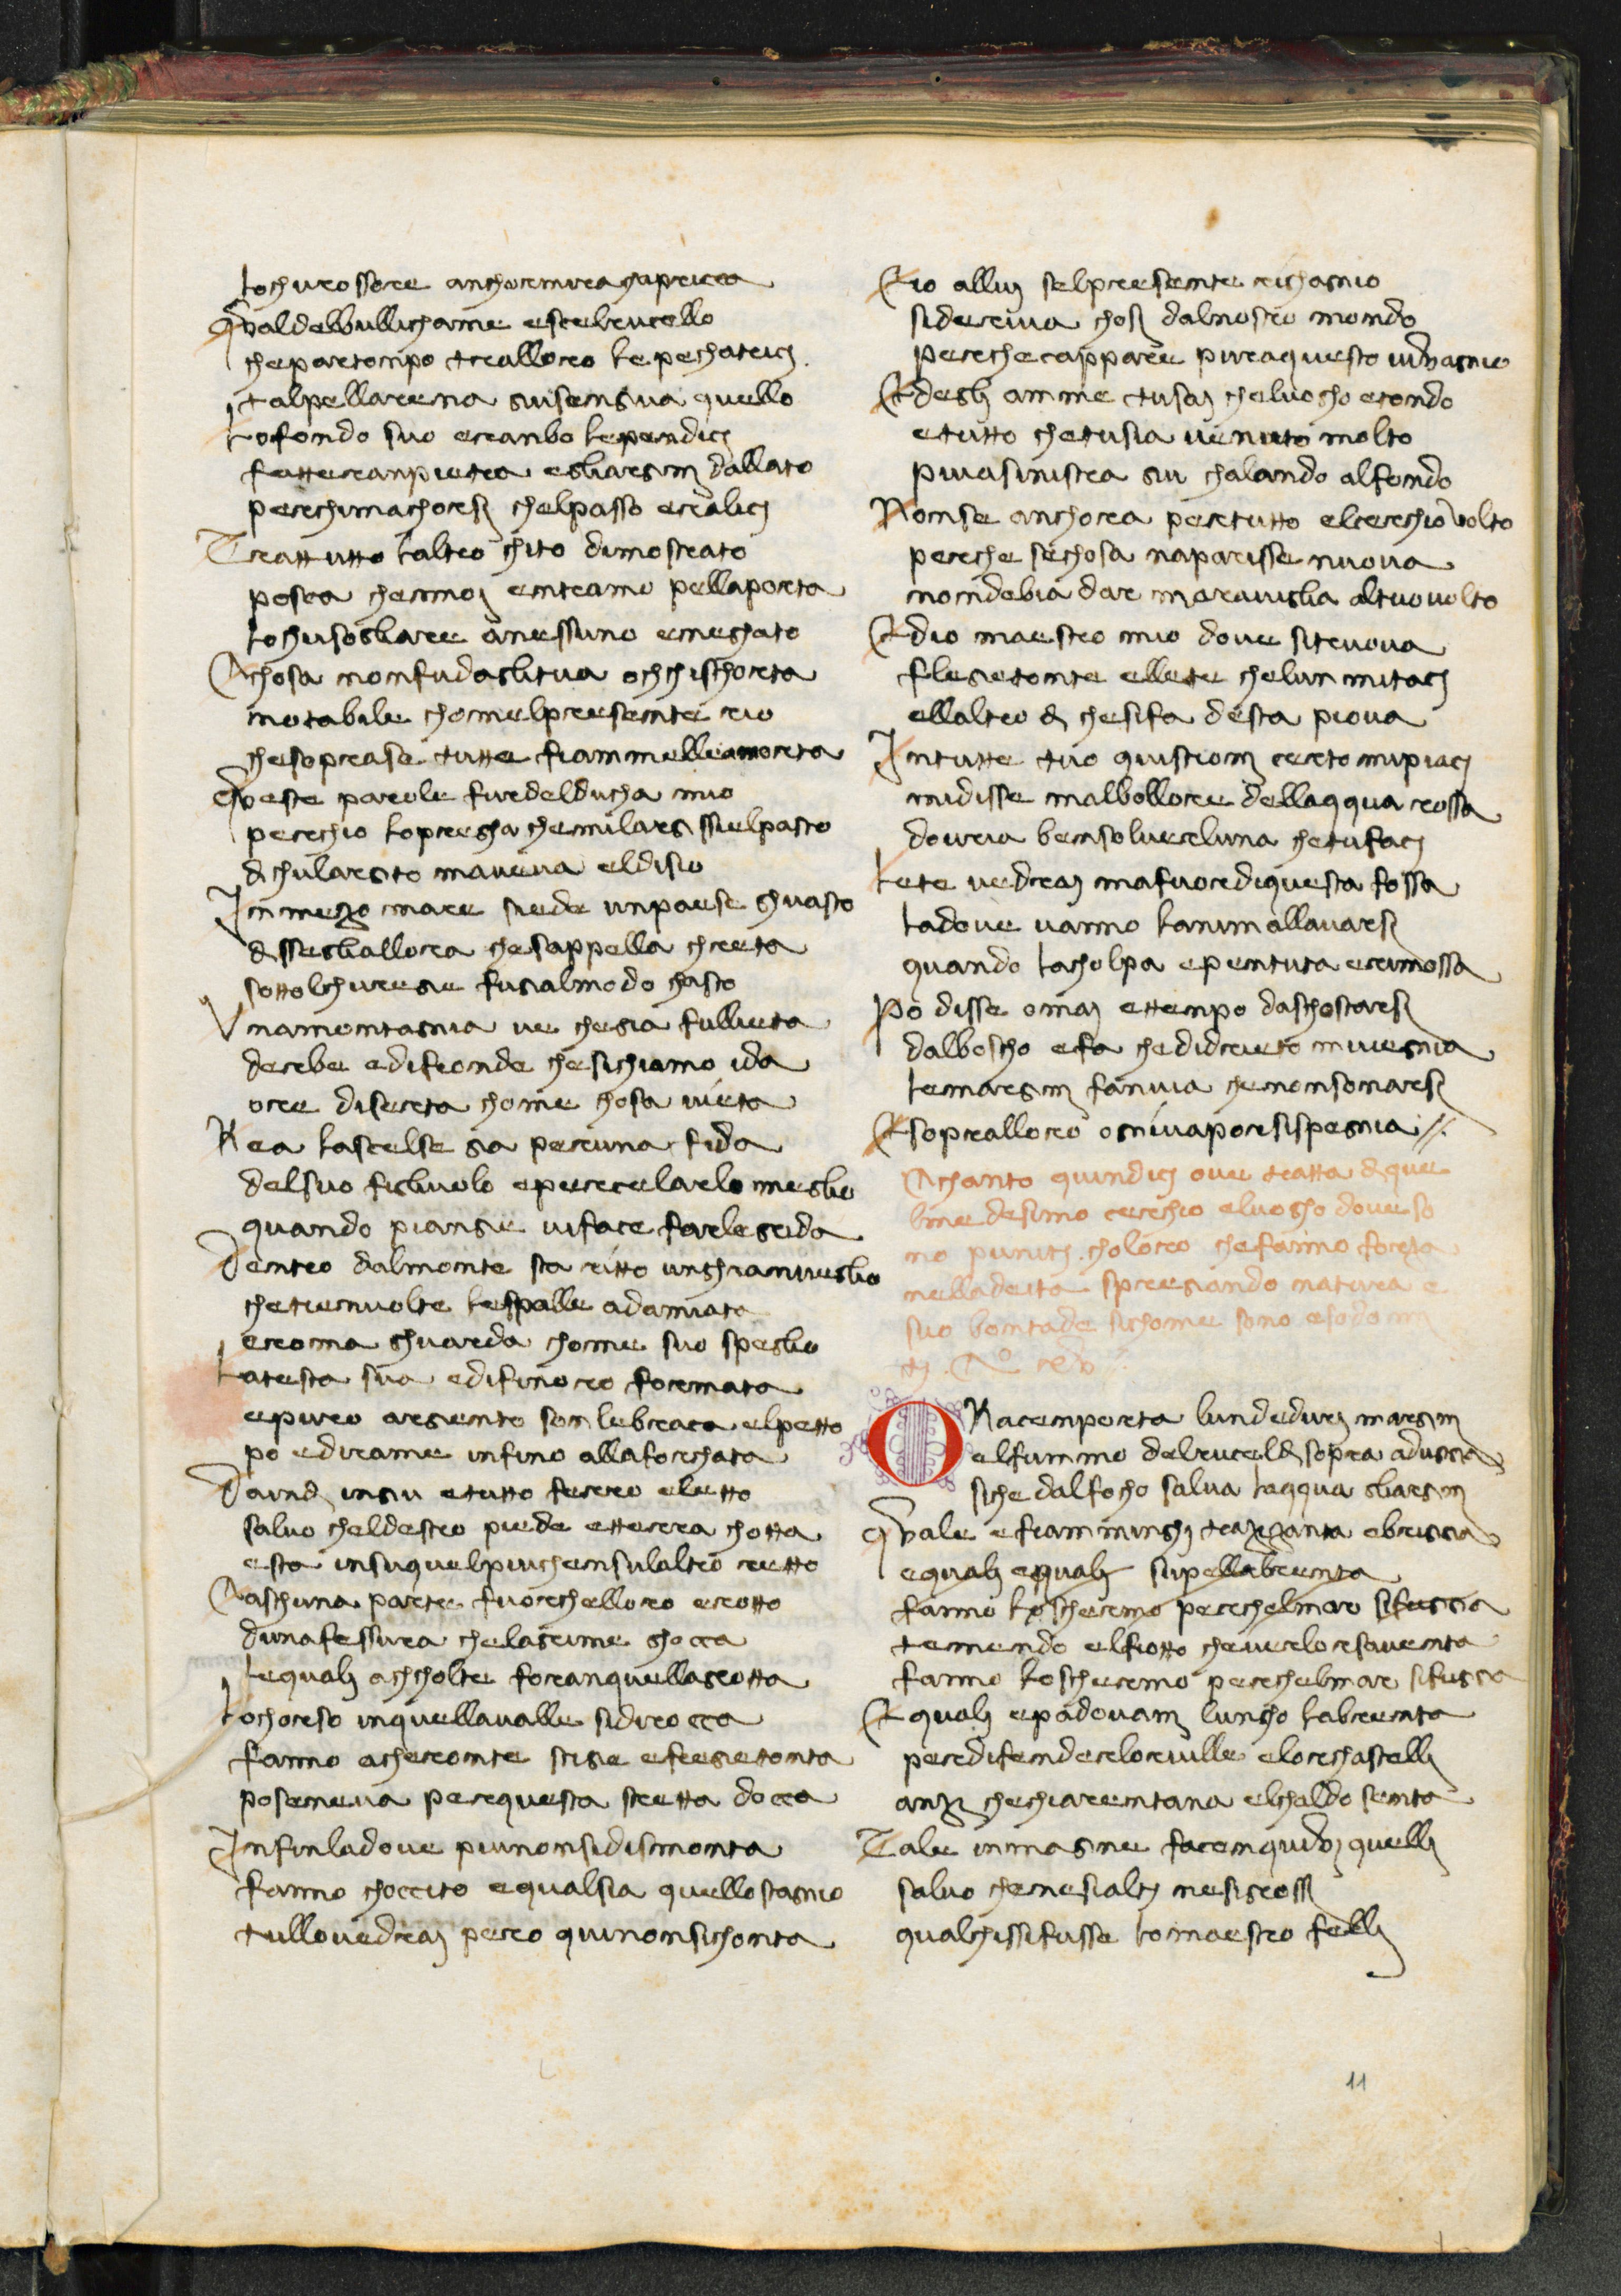 lochurossore anchormiragapriccia
Qval delbullichame escelruccello
cheparton po trallorо le pechatrici
talpellarena suisensiva quello
Lofondo suo eranbo lependici
fatteranpietra esliargini dallato
perchimachorsi chelpasso eralici
Trattutto laltro chito dimostrato
posca chennoi entramo pellaporta
lochusogliare anessuno eneghato
Chosa nonfudaglitua ochchischorta
notabile chomelpresente rio
chesoprase tutte fiammelleamorta
Queste parole furdelducha mio
perchio lopregha chemilargissielpasto
di chulargito maveva eldisio
In mezo mare siede unpaese ghuasto
dissegliallora chesappella chreta
sottolchurege fugialmodo chasto
Unamontagnia ve chegia fullieta
derbe edifronde chesichiamo ida
ore diserta chome chosa vieta
Rea lascelse gia percuna fida
delsuo figliuolo epercelarlo meglio
quando piangie viface farlegrida
Dentro dalmonte sta ritto unghranveglio
chetienvolte lespalle adamiata
eroma ghuarda chome suo speglio
Latesta sua edifinoro formata
epuro argiento son lebraccia elpetto
po edirame infino allaforchata
Daindi ingiu etutto ferro eletto
salvo cheldestro piede etterra chotta
esta insuquelpiuchensulaltro retto
Caschuna parte fuorchelloro erotto
dunafessura chelagrime ghoccia
lequali achcholte foranquellagrotta
Lochorso inquellavalle sidiroccia
fanno acheronte stige efregietonta
poseneva perquesta stretta doccia
Infinladove piunonsidismonta
fanno choccito equalsia quellostagnio
tullovedrai pero quinonsichonta
Eio allui selpresente righagnio
sideriva chosi dalnostro mondo
perchecappare pureaquesto vivagnio
Edegli amme tusai cheluocho etondo
etutto chetusia venuto molto
piuasinistra giu chalando alfondo
Nonse anchora pertutto elcerchio volto
perche sechosa naparisse nuova
nondebia dar maraviglia altuovolto
Edio maestro mio dove sitruova
flegetonte ellete chelun mitaci
ellaltro di chesifa desta piova
Intutte tuo quistioni certo mipiaci
midisse malbollore dellaqqua rossa
dovria bensolverluna chetufaci
Lete vedrai mafuordiquesta fossa
ladove vanno lanimallavarsi
quando lacholpa epentuta erimossa
Po disse omai ettempo daschostarsi
dalboscho efa chedidrieto mivegnia
lemargini fanvia chenonsonarsi
Esoprалloro ognivaporsispegnia //.
Chanto quindici ove tratta di que
lmedesimo cerchio eluogho dove so
no puniti choloro chefanno forza
nelladeita spregiando natura e
sua bontade sichome sono esodomi
ti. No xv
ORacenporta lundeduri margini
elfummo delruceldi sopra aduggia
siche dalfocho salva laqqua gliargini
Qvale efiamminghi trazzanta ebruggia
equali equali supellabrenta
fanno loschermo perchelmar sifuggia
temendo elfiotto cheverlorsaventa
fanno loschermo perchelmar sifuggia
Equali epadovani lungho labrenta
perdifenderlorville elorchastelli
anzi chechiarentana elchaldo senta
Tale inmagine facenquivi quelli
salvo chenesialti nesigrossi
qualchissifusse lomaestro felli
11